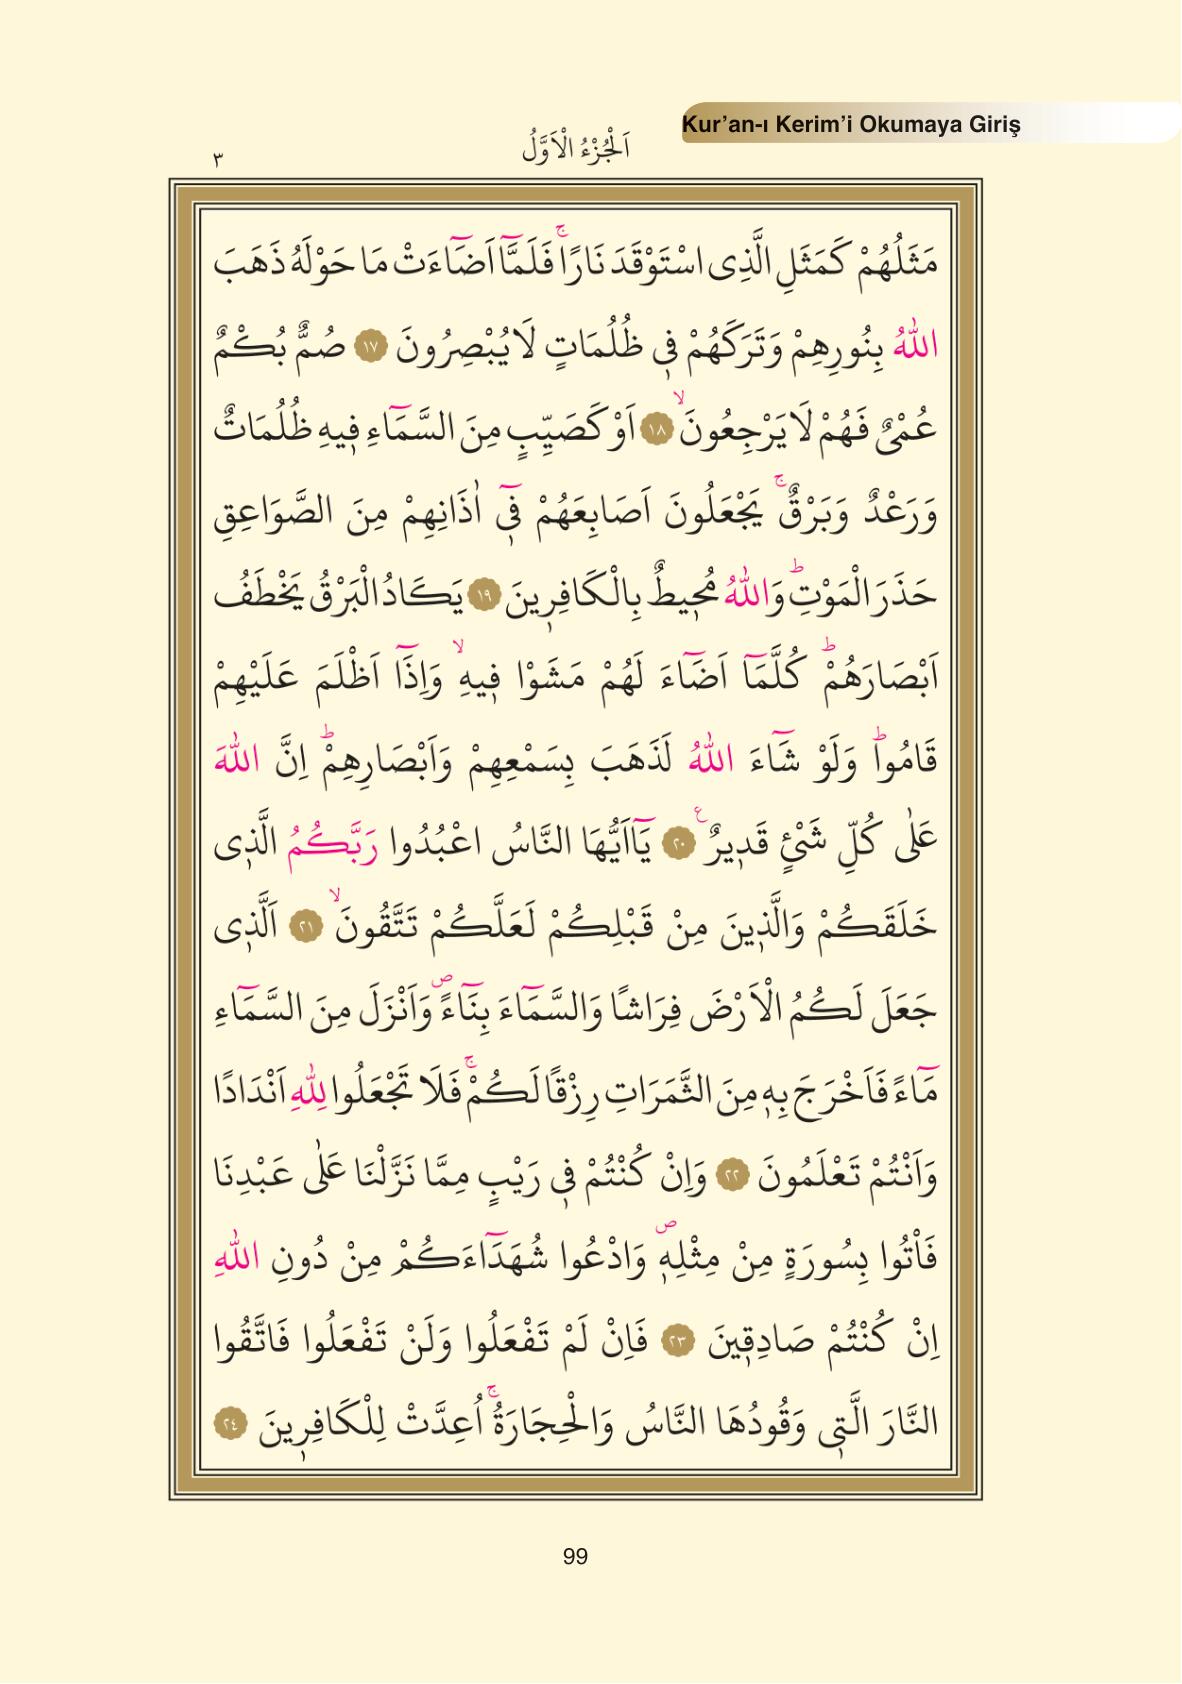 Kur’an-ı Kerim’i Okumaya Giriş
اَلْجُزْءُ الْاَوَّلُ
٣
مَثَلُهُمْ كَمَثَلِ الَّذِى اسْتَوْقَدَ نَارًاۚ فَلَمَّٓا اَضَٓاءَتْ مَا حَوْلَهُ ذَهَبَ
اللّٰهُ بِنُورِهِمْ وَتَرَكَهُمْ فٖى ظُلُمَاتٍ لَا يُبْصِرُونَ ﴿١٧﴾ صُمٌّ بُكْمٌ
عُمْىٌ فَهُمْ لَا يَرْجِعُونَۙ ﴿١٨﴾ اَوْ كَصَيِّبٍ مِنَ السَّمَٓاءِ فٖيهِ ظُلُمَاتٌ
وَرَعْدٌ وَبَرْقٌۚ يَجْعَلُونَ اَصَابِعَهُمْ فٖٓى اٰذَانِهِمْ مِنَ الصَّوَاعِقِ
حَذَرَ الْمَوْتِؕ وَاللّٰهُ مُحٖيطٌ بِالْكَافِرٖينَ ﴿١٩﴾ يَكَادُ الْبَرْقُ يَخْطَفُ
اَبْصَارَهُمْؕ كُلَّمَٓا اَضَٓاءَ لَهُمْ مَشَوْا فٖيهِۙ وَاِذَٓا اَظْلَمَ عَلَيْهِمْ
قَامُواؕ وَلَوْ شَٓاءَ اللّٰهُ لَذَهَبَ بِسَمْعِهِمْ وَاَبْصَارِهِمْؕ اِنَّ اللّٰهَ
عَلٰى كُلِّ شَىْءٍ قَدٖيرٌ ع ﴿٢٠﴾ يَٓااَيُّهَا النَّاسُ اعْبُدُوا رَبَّكُمُ الَّذٖى
خَلَقَكُمْ وَالَّذٖينَ مِنْ قَبْلِكُمْ لَعَلَّكُمْ تَتَّقُونَۙ ﴿٢١﴾ اَلَّذٖى
جَعَلَ لَكُمُ الْاَرْضَ فِرَاشًا وَالسَّمَٓاءَ بِنَٓاءً ص وَاَنْزَلَ مِنَ السَّمَٓاءِ
مَٓاءً فَاَخْرَجَ بِهٖ مِنَ الثَّمَرَاتِ رِزْقًا لَكُمْۚ فَلَا تَجْعَلُوا لِلّٰهِ اَنْدَادًا
وَاَنْتُمْ تَعْلَمُونَ ﴿٢٢﴾ وَاِنْ كُنْتُمْ فٖى رَيْبٍ مِمَّا نَزَّلْنَا عَلٰى عَبْدِنَا
فَاْتُوا بِسُورَةٍ مِنْ مِثْلِهٖ ص وَادْعُوا شُهَدَٓاءَكُمْ مِنْ دُونِ اللّٰهِ
اِنْ كُنْتُمْ صَادِقٖينَ ﴿٢٣﴾ فَاِنْ لَمْ تَفْعَلُوا وَلَنْ تَفْعَلُوا فَاتَّقُوا
النَّارَ الَّتٖى وَقُودُهَا النَّاسُ وَالْحِجَارَةُۚ اُعِدَّتْ لِلْكَافِرٖينَ ﴿٢٤﴾
99